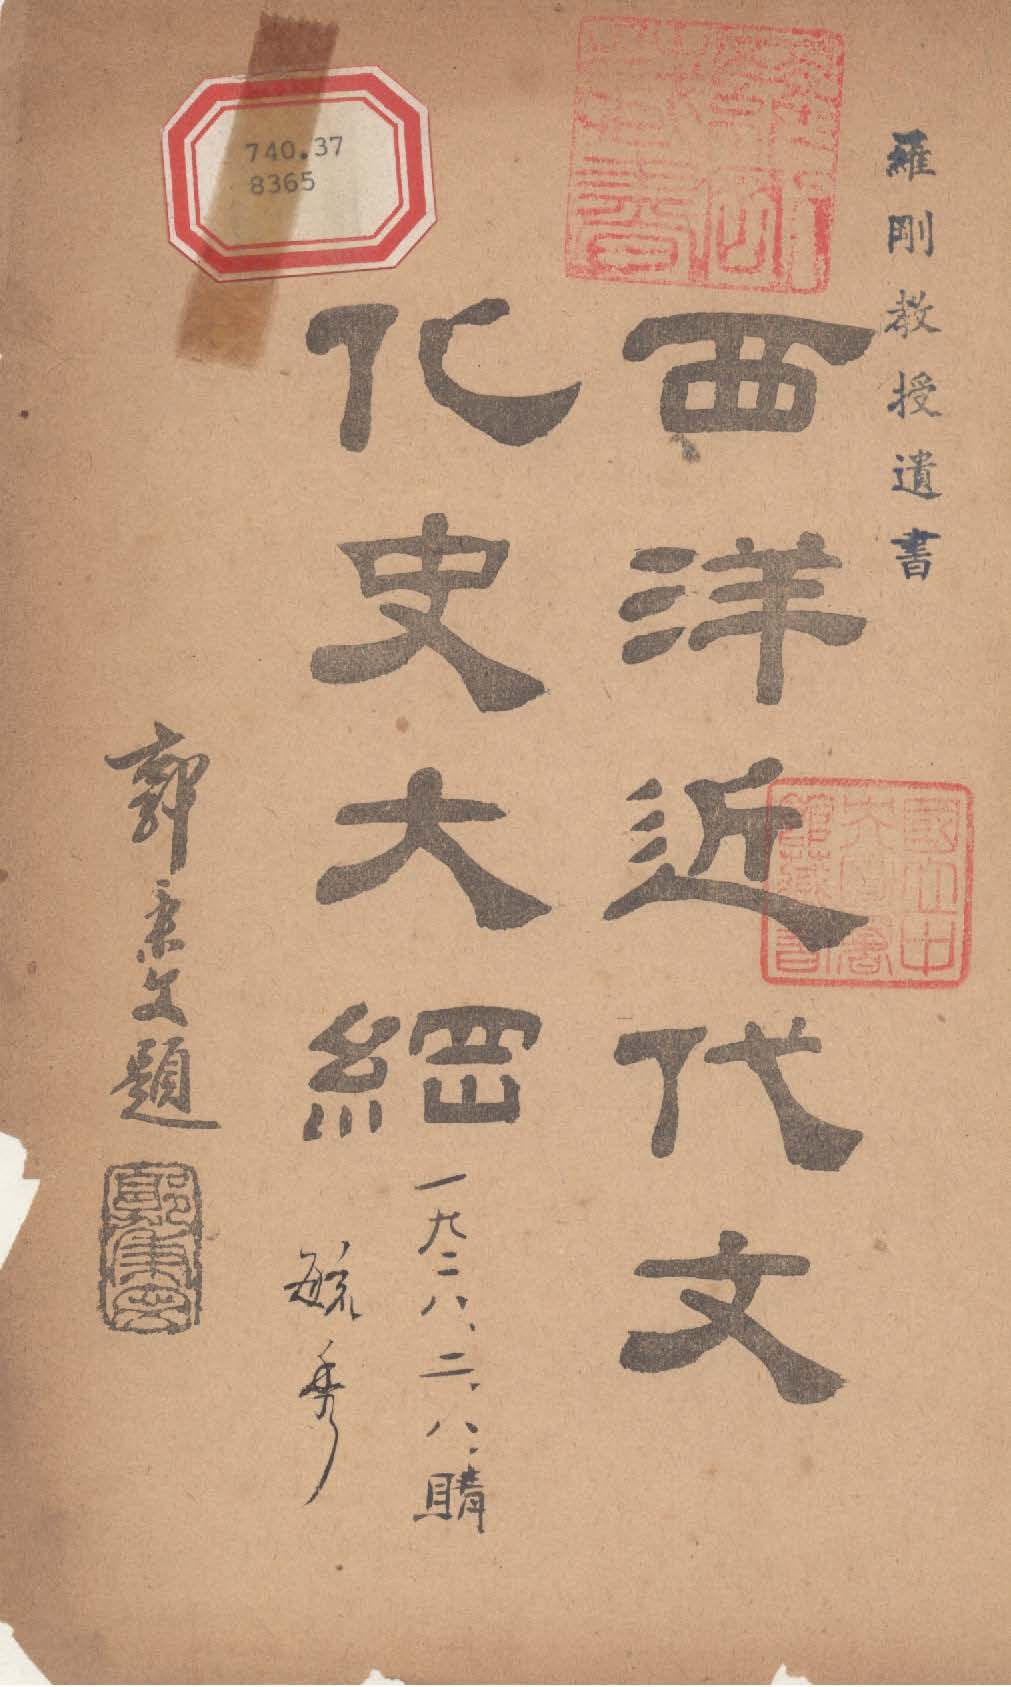 740.37
8365
羅剛教授遺書
國立中
央圖書
館藏書
西洋近代文
化史大綱
一九二八、二、八、購
毓秀
郭秉文題
郭秉文